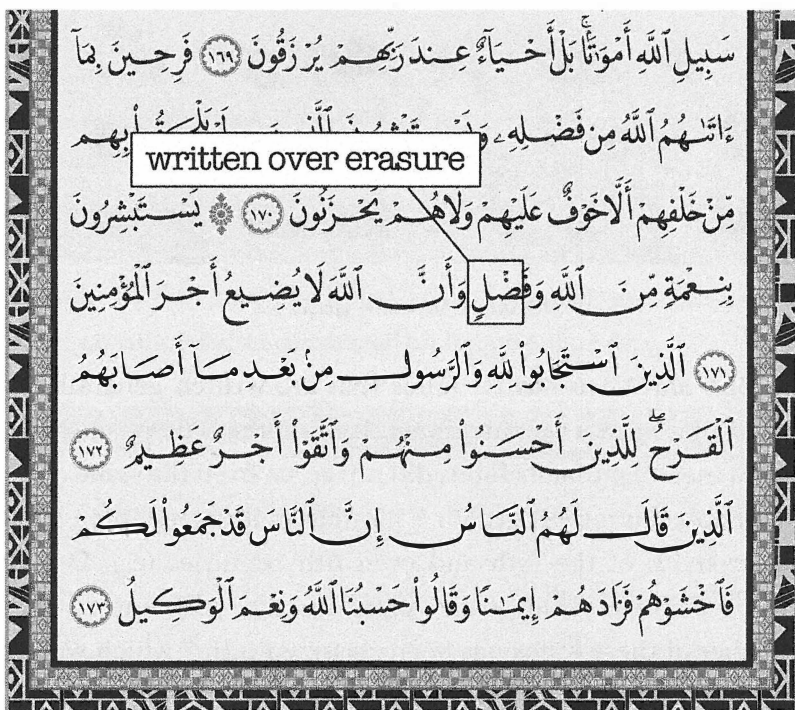 سَبِيلِ ٱللَّهِ أَمْوَٰتًۢا بَلْ أَحْيَآءٌ عِندَ رَبِّهِمْ يُرْزَقُونَ ١٦٩ فَرِحِينَ بِمَآ
ءَاتَىٰهُمُ ٱللَّهُ مِن فَضْلِهِۦ بِهِم
written over erasure
مِّنْ خَلْفِهِمْ أَلَّا خَوْفٌ عَلَيْهِمْ وَلَا هُمْ يَحْزَنُونَ ١٧٠ ۞ يَسْتَبْشِرُونَ
بِنِعْمَةٍ مِّنَ ٱللَّهِ وَفَضْلٍ وَأَنَّ ٱللَّهَ لَا يُضِيعُ أَجْرَ ٱلْمُؤْمِنِينَ
١٧١ ٱلَّذِينَ ٱسْتَجَابُوا۟ لِلَّهِ وَٱلرَّسُولِ مِنۢ بَعْدِ مَآ أَصَابَهُمُ
ٱلْقَرْحُ ۚ لِلَّذِينَ أَحْسَنُوا۟ مِنْهُمْ وَٱتَّقَوْا۟ أَجْرٌ عَظِيمٌ ١٧٢
ٱلَّذِينَ قَالَ لَهُمُ ٱلنَّاسُ إِنَّ ٱلنَّاسَ قَدْ جَمَعُوا۟ لَكُمْ
فَٱخْشَوْهُمْ فَزَادَهُمْ إِيمَٰنًا وَقَالُوا۟ حَسْبُنَا ٱللَّهُ وَنِعْمَ ٱلْوَكِيلُ ١٧٣